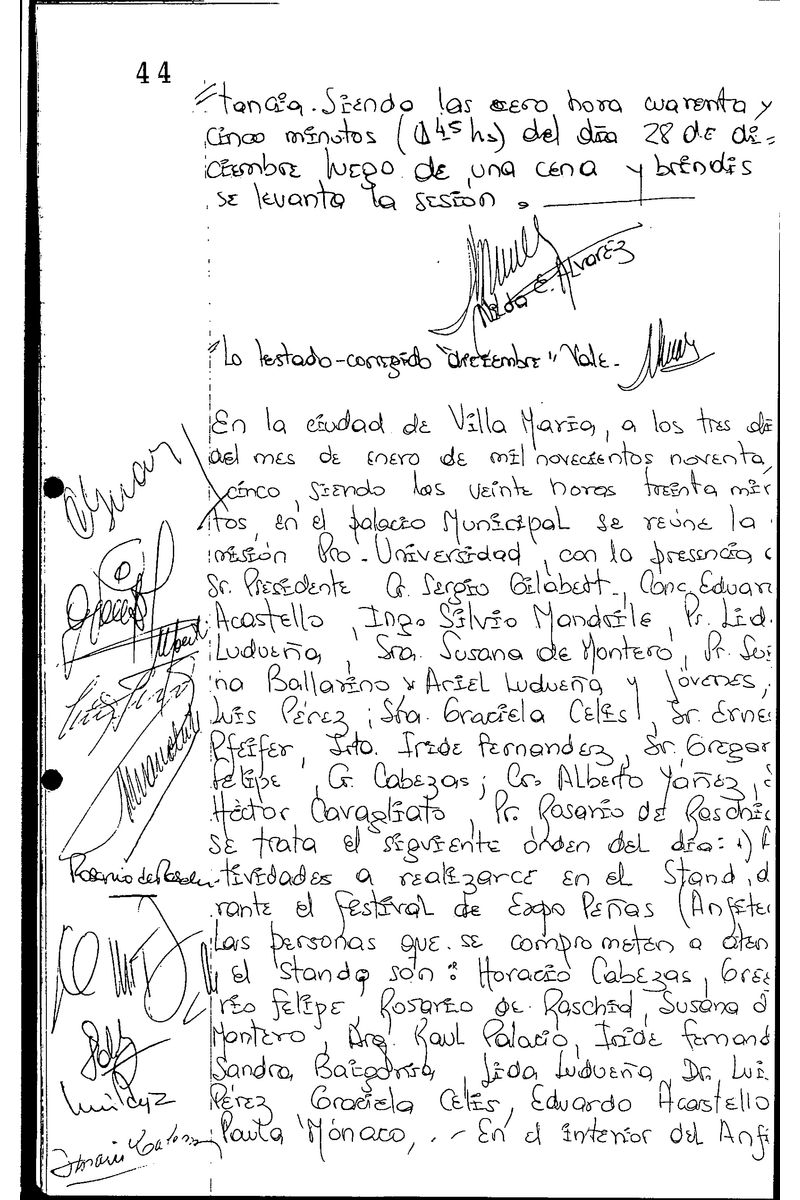 44
tancia. Siendo las cero hora cuarenta y
cinco minutos (0 45 hs) del día 28 de di=
ciembre luego de una cena y brindis
se levanta la sesión.
Nilda E. Alvarez
Lo testado-corregido "diciembre" Vale.
En la ciudad de Villa María, a los tres di
del mes de enero de mil novecientos noventa
cinco, siendo las veinte horas treinta min
tos, en el palacio Municipal se reúne la
misión Pro-Universidad, con la presencia
Sr. Presidente Cr Sergio Gilabert, Conc. Eduar
Acastello, Ing. Silvio Mandrile, Pr. Lid.
Ludueña, Sra. Susana de Montero, Pr. Sil
na Ballarino y Ariel Ludueña y Jóvenes;
Luis Pérez; Sra. Graciela Celis, Sr. Ernes
Pfeifer, Iride Fernandez, Sr. Gregor
Felipe, G. Cabezas; Cr. Alberto Yañez,
Héctor Cavagliato, Pr. Rosario de Raschid
se trata el siguiente orden del día: 1) A
tividades a realizarce en el Stand, d
rante el festival de Expo Peñas (Anfite
Las personas que se comprometen a aten
el stando son: Horacio Cabezas, Greg
rio Felipe, Rosario de Raschid, Susana d
Montero, Arq. Raul Palacio, Iride Fernand
Sandra Baigorria, Lida Ludueña, Dr. Lui
Pérez Graciela Celis, Eduardo Acastello
Paula Mónaco, .- En el interior del Anfi
Rosario de Raschid
Luis Pérez